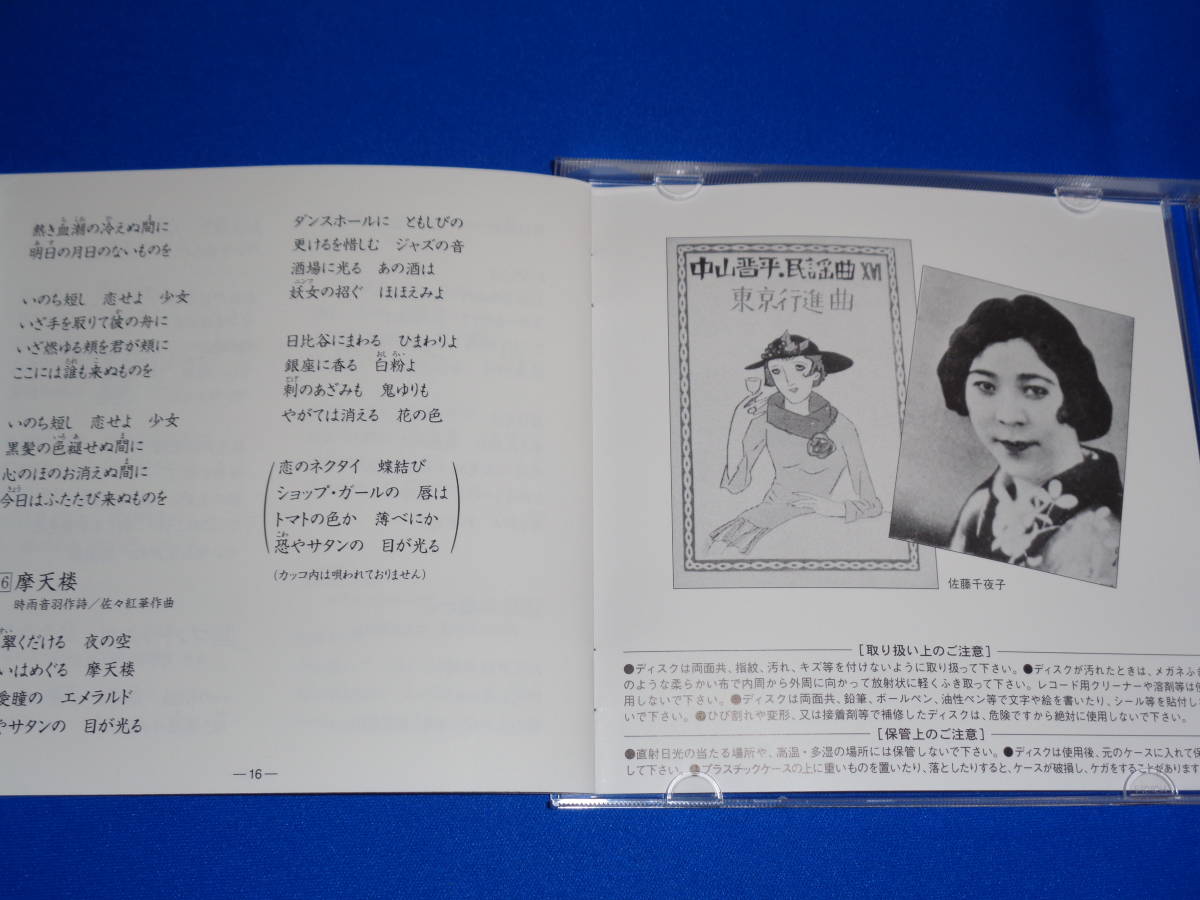 熱き血潮の冷えぬ間に
明日の月日のないものを
いのち短し 恋せよ 少女
いざ手を取りて彼の舟に
いざ燃ゆる頬を君が頬に
ここには誰も来ぬものを
いのち短し 恋せよ 少女
黒髪の色褪せぬ間に
心のほのお消えぬ間に
今日はふたたび来ぬものを
6 摩天楼
時雨音羽作詩/佐々紅華作曲
翠くだける 夜の空
いはめぐる 摩天楼
愛瞳の エメラルド
やサタンの 目が光る
ダンスホールに ともしびの
更けるを惜しむ ジャズの音
酒場に光る あの酒は
妖女の招ぐ ほほえみよ
日比谷にまわる ひまわりよ
銀座に香る 白粉よ
刺のあざみも 鬼ゆりも
やがては消える 花の色
(恋のネクタイ 蝶結び
ショップ・ガールの 唇は
トマトの色か 薄べにか
恐やサタンの 目が光る)
(カッコ内は唄われておりません)
—16—
中山晋平・民謡曲 XVI
東京行進曲
佐藤千夜子
[取り扱い上のご注意]
●ディスクは両面共、指紋、汚れ、キズ等を付けないように取り扱って下さい。●ディスクが汚れたときは、メガネふき
のような柔らかい布で内周から外周に向かって放射状に軽くふき取って下さい。レコード用クリーナーや溶剤等は使
用しないで下さい。●ディスクは両面共、鉛筆、ボールペン、油性ペン等で文字や絵を書いたり、シール等を貼付しな
いで下さい。●ひび割れや変形、又は接着剤等で補修したディスクは、危険ですから絶対に使用しないで下さい。
[保管上のご注意]
●直射日光の当たる場所や、高温・多湿の場所には保管しないで下さい。●ディスクは使用後、元のケースに入れて保
して下さい。●プラスチックケースの上に重いものを置いたり、落としたりすると、ケースが破損し、ケガをすることがあります